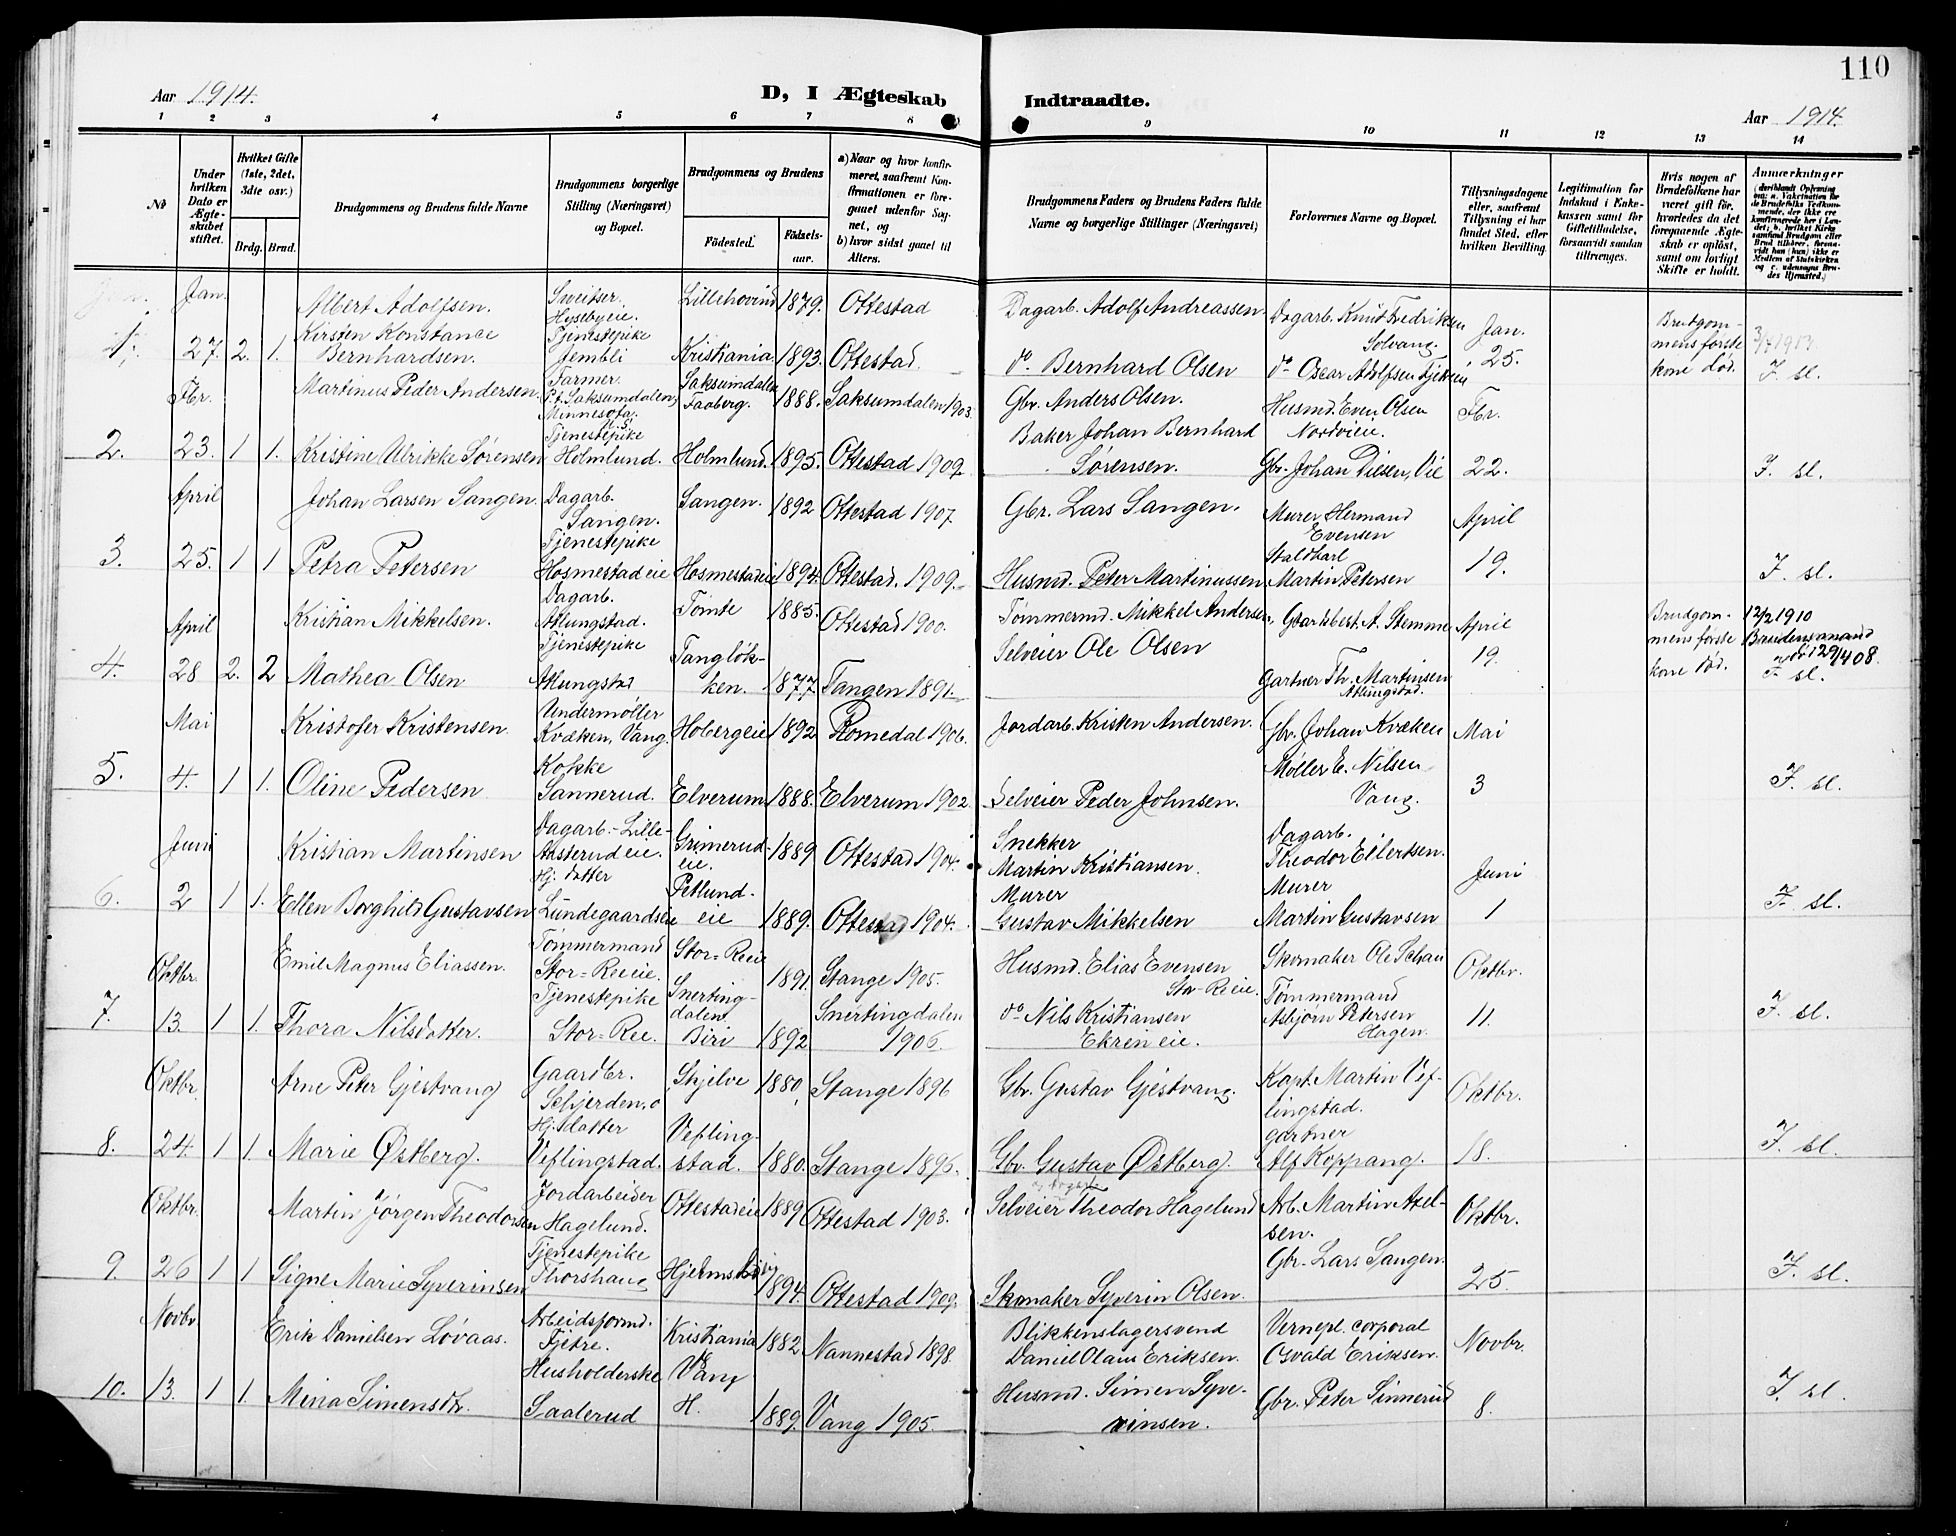 110
Aar 1914.
D, I Ægteskab Indtraadte.
Aar 1914.
1 2 3 4 5 6 7 8 9 10 11 12 13 14
No
Under hvilken Dato er Ægteskabet stiftet.
Hvilket Gifte (1ste, 2det, 3dte osv.)
Brdg. Brud.
Brudgommens og Brudens fulde Navne
Brudgommens borgerlige Stilling (Næringsvei) og Bopæl.
Brudgommens og Brudens
Fødested. Fødselsaar.
a) Naar og hvor konfirmeret, saafremt Konfirmationen er foregaaet udenfor Sognet, og
b) hvor sidst gaaet til Alters.
Brudgommens Faders og Brudens Faders fulde Navne og borgerlige Stillinger (Næringsvei)
Forlovernes Navne og Bopæl.
Tillysningsdagene eller, saafremt Tillysning ei har fundet Sted, efter hvilken Bevilling.
Legitimation for Indskud i Enkekassen samt for Giftetilladelse, forsaavidt saadan tiltrænges.
Hvis nogen af Brudefolkene har været gift før, hvorledes da det foregaaende Ægteskab er opløst, samt om lovligt Skifte er holdt.
Anmærkninger
Jan. Albert Adolfsen. Sweitser. Hysebyeie. Lillehovind 1879. Ottestad Dagarb. Adolf Andreassen Dagarb. Knut Fredriksen Solvang. Jan. Brudgommens første kone død.
1. 27. 2. 1. Kirsten Konstance Bernhardsen. Tjenestepike Jembli Kristiania 1893. Ottestad do Bernhard Olsen do Oscar Adolfsen 25. F. sl.
Fbr. Martinus Peder Andersen. Farmer. P.t. Saksumdalen, Minnesota. Saksumdalen Faaberg. 1888. Saksumdalen 1903. Gbr. Anders Olsen. Husmd. Even Olsen Nordvieie. Fbr.
2. 23. 1 1. Kristine Ulrikke Sørensen Tjenestepike Holmlund. Holmlund. 1895. Ottestad 1909. Baker Johan Bernhard Sørensen. Gbr. Johan Diesen, Vie 22. F. sl.
April Johan Larsen Sangen. Dagarb. Sangen. Sangen. 1892 Ottestad 1907. Gbr. Lars Sangen. Murer Hermand Evensen April
3. 25. 1 1 Petra Petersen Tjenestepike Hosmestadeie Hosmestadeie 1894. Ottestad. 1909. Husmd. Peter Martinussen Staldkarl Martin Petersen 19. F. sl.
April Kristian Mikkelsen. Dagarb. Atlungstad. Tomte 1885. Ottestad 1900. Tømmermd. Mikkel Andersen, Gaardsbest. A. Stemme April Brudgommens første kone død. 12/2 1910
4. 28 2. 2 Mathea Olsen Tjenestepike Atlungstad Tangløkken. 1877. Tangen 1891. Selveier Ole Olsen Gartner Th. Martinsen Atlungstad. 19. Brudens mand død 29/4 08. F. sl.
Mai Kristofer Kristensen Undermøller Kvæken, Vang. Hobergeie 1892 Romedal 1906. Jordarb. Kristen Andersen. Gbr. Johan Kvæken Mai
5. 4. 1 1. Oline Pedersen Kokke Sannerud. Elverum 1888. Elverum 1902. Selveier Peder Johnsen. Møller E. Nilsen Vang. 3 F. sl.
Juni Kristian Martinsen Dagarb. Lille- Aasterudeie. Grimerudeie. 1889 Ottestad 1904. Snekker Martin Kristiansen. Dagarb. Theodor Eilertsen. Juni
6. 2 1 1. Ellen Borghild Gustavsen Hj. datter Lundegaardseie Petlundeie 1889. Ottestad 1904. Murer Gustav Mikkelsen Murer Martin Gustavsen 1 F. sl.
Oktbr. Emil Magnus Eliassen. Tømmermand Stor-Reeie. Stor-Reeie 1891. Stange 1905. Husmd. Elias Evensen Stor-Reeie. Skomaker Ole Schau Oktbr.
7. 13. 1 1. Thora Nilsdatter. Tjenestepike Stor-Ree. Snertingdalen Biri 1892 Snertingdalen 1906. do Nils Kristiansen Ekren eie. Tømmermand Asbjørn Petersen Hagen. 11. F. sl.
Oktbr. Arne Peter Gjestvang Gaardbr. Schjerden, o Skjelve 1880, Stange 1896 Gbr. Gustav Gjestvang. Kapt. Martin Veflingstad. Oktbr.
8. 24. 1 1. Marie Østberg. Hj. datter Veflingstad. Veflingstad. 1880. Stange 1896. Gbr. Gustav Østberg. gartner Alf Koppang. 18. F. sl.
Oktbr. Martin Jørgen Theodorsen Jordarbeider Hagelund. Ottestadeie 1889 Ottestad 1903. Selveier Theodor Hagelund Arb. Martin Axelsen. Oktbr.
9. 26 1 1 Signe Marie Syverinsen Tjenestepike Thorshaug 1894. Ottestad 1909. Skomaker Syverin Olsen. Gbr. Lars Sangen. 25 F. sl.
Novbr. Erik Danielsen Løvaas. Arbeidsformd. Fjetre. Kristiania 1882. Nannestad 1898. Blikkenslagersvend Daniel Olaus Eriksen. Vernepl. corporal Osvald Eriksen. Novbr.
10. 13. 1 1. Mina Simensdtr. Husholderske Saalerud Vang H. 1889. Vang 1905. Husmd. Simen Syverinsen. Gbr. Peter Sinnerud 8. F. sl.